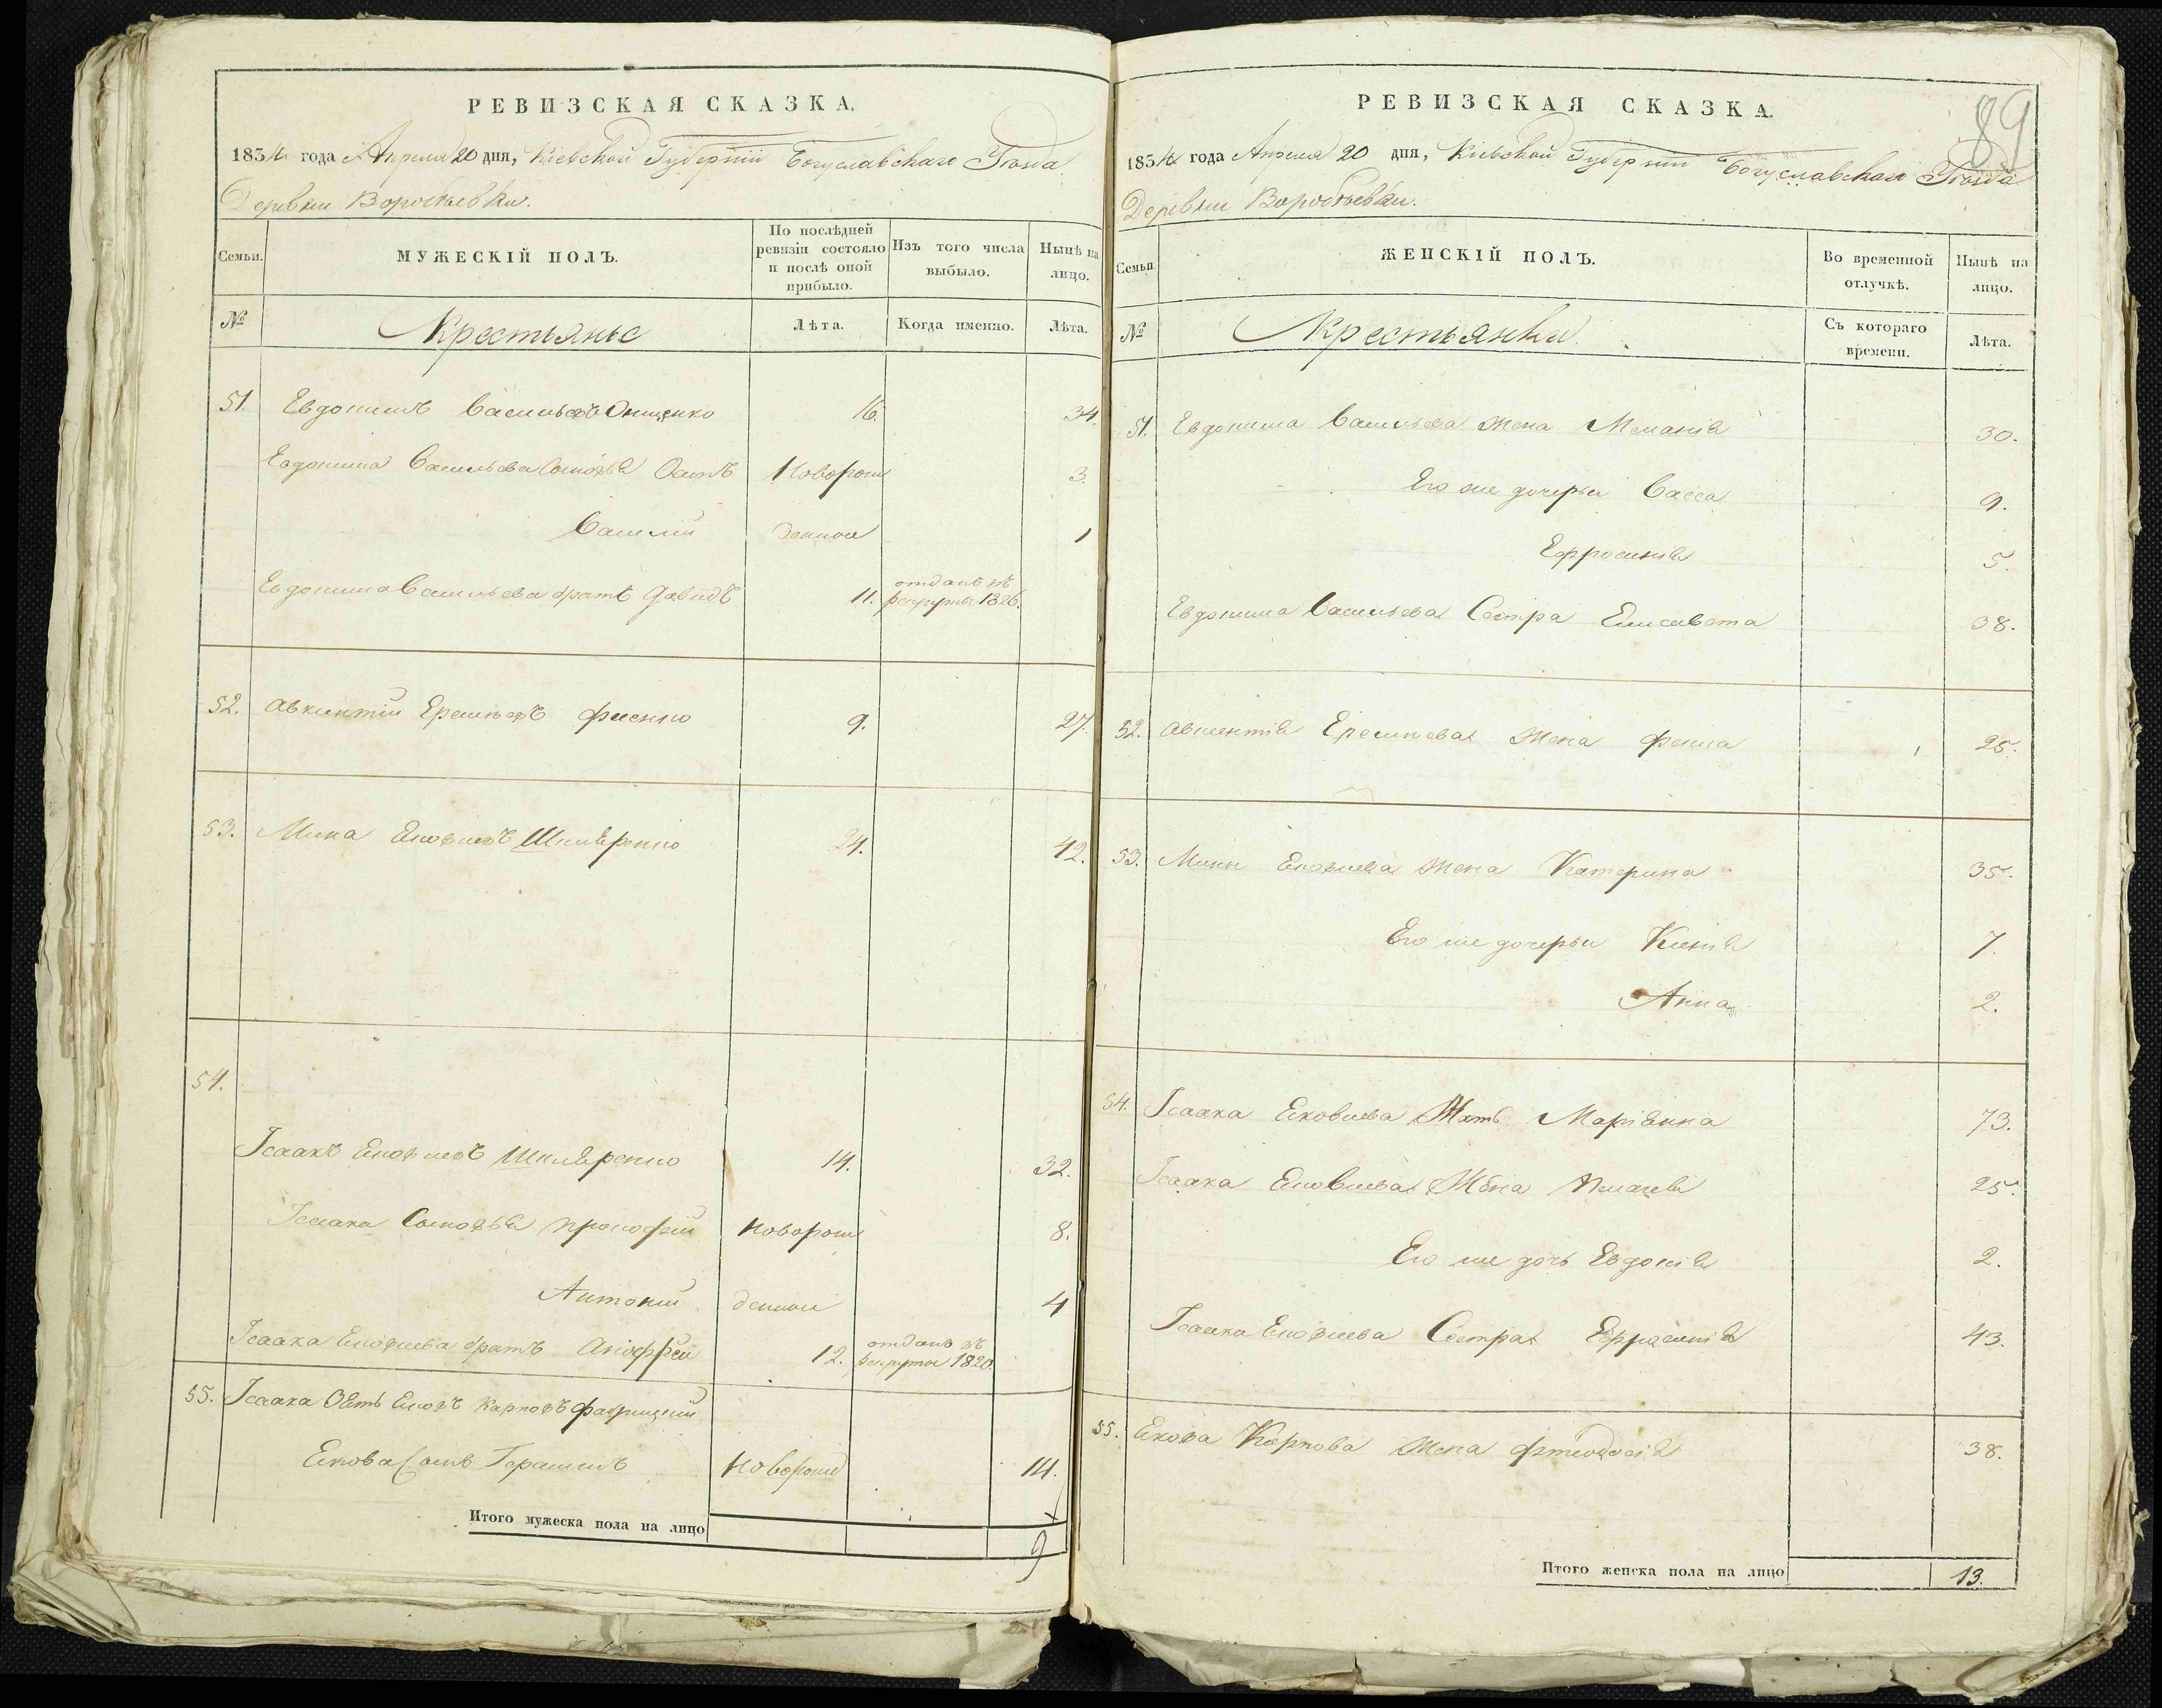 РЕВИЗСКАЯ СКАЗКА.
1834 года Апреля 20 дня, Кіевской Губерніи Богуславскаго Уѣзда
Деревни Воробьевки.
Семьи.
МУЖЕСКІЙ ПОЛЪ.
По послѣдней ревизіи состояло и послѣ оной прибыло.
Изъ того числа выбыло.
Нынѣ на лицо.
№
Крестьяне
Лѣта.
Когда именно.
Лѣта.
51. Евдокимъ Васильевъ Онищенко 16. 34.
Евдокима Васильева Сыновья Осипъ Новорож 3.
Василій денные 1
Евдокима Васильева братъ Давидъ 11. отданъ въ рекруты 1826.
52. Авксентій Ереміевъ 9. 27.
53. Мина Яковлевъ Шкляренко 24. 42.
54.
Ісаакъ Яковлевъ Шкляренко 14. 32.
Ісаака Сыновья Прокофій Новорож 8.
Антоній денные 4
Ісаака Яковлева братъ 12. отданъ въ рекруты 1820.
55. Ісаака Зять Яковъ Карповъ
Якова Сынъ Герасимъ Новорожд 14.
Итого мужеска пола на лицо 9
РЕВИЗСКАЯ СКАЗКА.
89
1834 года Апреля 20 дня, Кіевской Губерніи Богуславскаго Уѣзда
Деревни Воробьевки.
Семьи
ЖЕНСКІЙ ПОЛЪ.
Во временной отлучкѣ.
Нынѣ на лицо.
№
Крестьянки.
Съ котораго времени.
Лѣта.
51. Евдокима Васильева жена Меланія 30.
Его же дочерьи Васса 9.
Ефросинія 5.
Евдокима Васильева Сестра Елисавета 38.
52. Авксентія Ереміева жена Фекла 25.
53. Мины Яковлева жена Катерина 35.
Его же дочерьи Ксенія 7.
Анна 2.
54. Ісаака Яковлева Мать Маріанна 73.
Ісаака Яковлева Жена 25.
Его же дочь Евдокія 2.
Ісаака Яковлева Сестра Ефросинія 43.
55. Якова Карпова жена 38.
Итого женска пола на лицо 13.